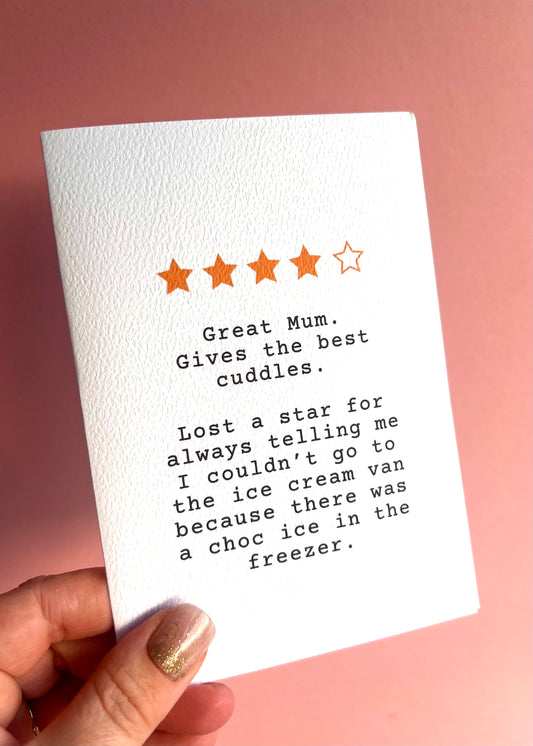 Great Mum.
Gives the best
cuddles.
Lost a star for
always telling me
I couldn't go to
the ice cream van
because there was
a choc ice in the
freezer.